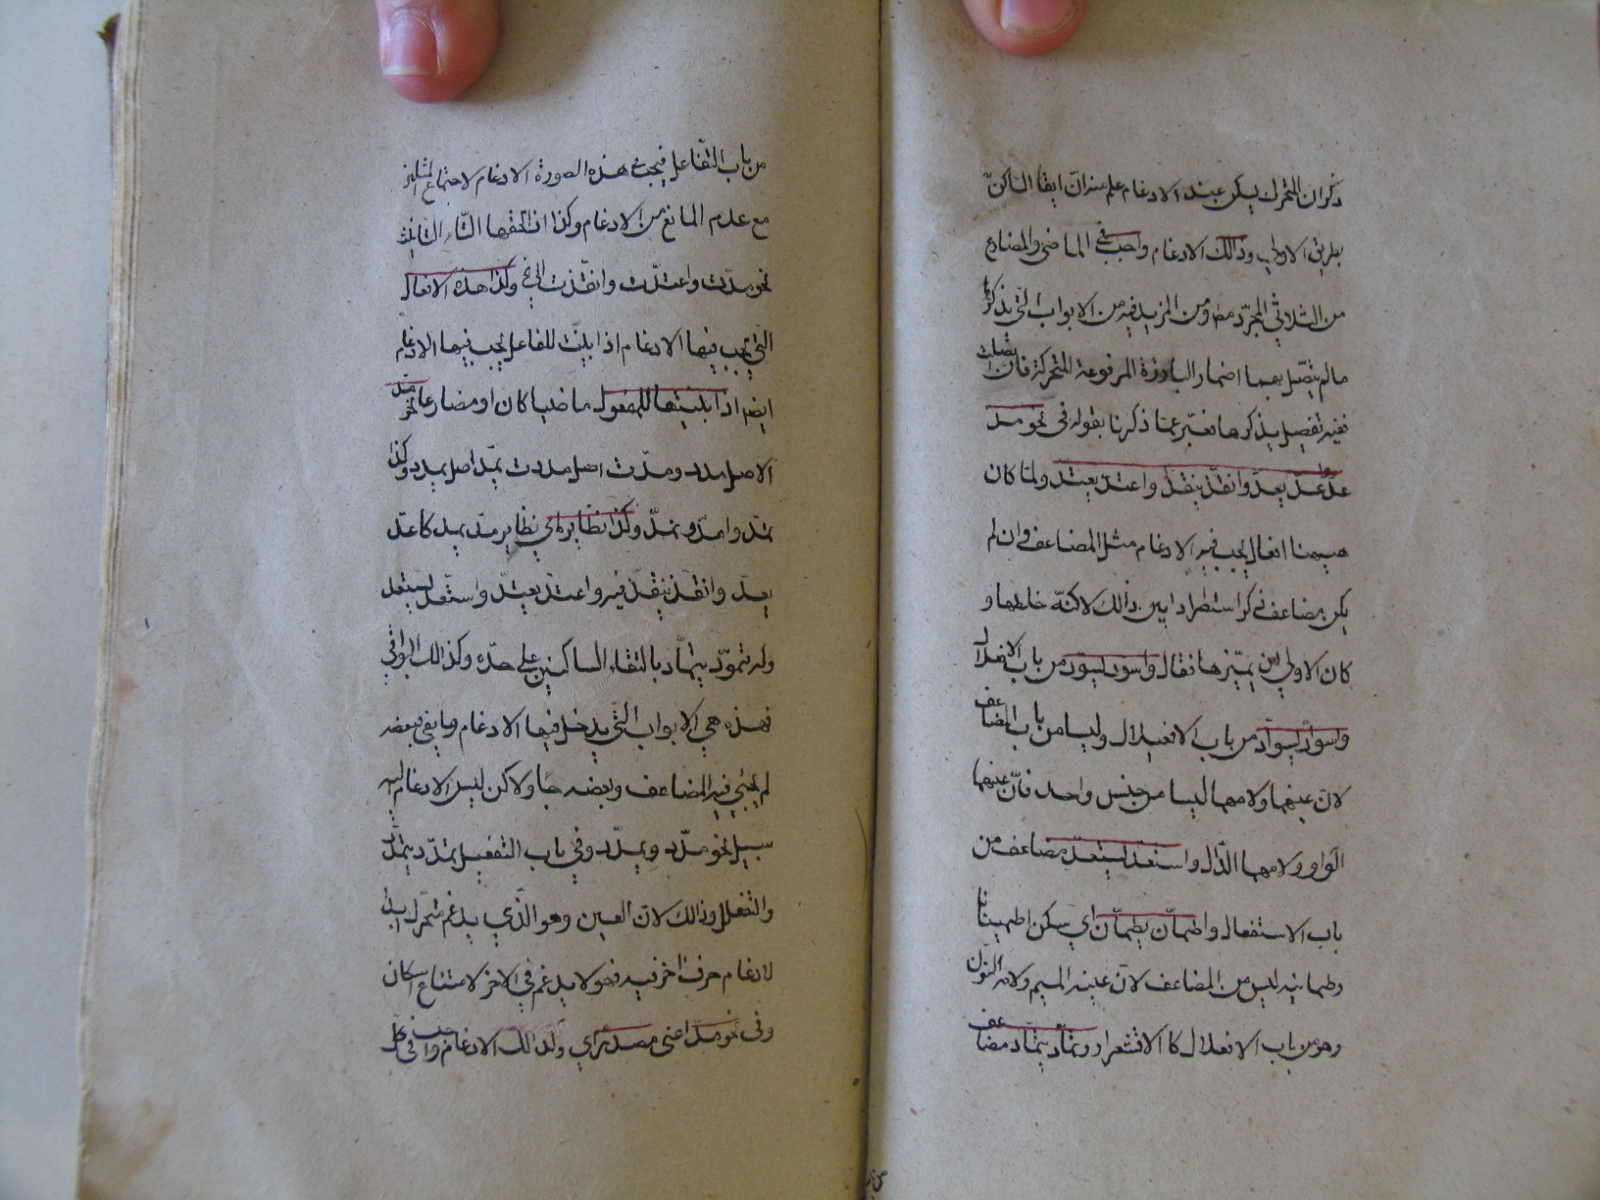 ذكر ان المتحرك يسكن عند الادغام علم منه ان ابقا الساكن
بطريق الاولى وذالك الادغام واجب في الماضى والمضارع
من الثلاثي المجرّد مط ومن المزيد فيه من الابواب التى يذكرها
مالم يتصل بهما اضمار البارزة المرفوعة المتحركة فان اتصلت
ففيه تفصيل يذكرها فعبّر عمّا ذكرنا بقوله فى نحو مد
عدّ يعدّ وانقدّ ينقدّ واعتدّ يعتدّ ولما كان
هيهنا افعال يجب فيه الادغام مثل المضاعف وان لم
يكن مضاعف ذكر استطرادا بين ذالك لاكنّه خلطها و
كان الاولى ان يميّزها فقال واسودّ يسودّ من باب الافعلال
واسوادّ يسوادّ من باب الافعيلال وليسا من باب المضاعف
لانّ عينهما ولامهما ليسا من جنس واحد فانّ عينهما
الواو ولامهما الدّال واستعدّ يستعدّ مضاعف من
باب الاستفعال واطمأنّ يطمأنّ اي سكن اطمينانا
وطمانينه ليس من المضاعف لانّ عينه الميم ولامه النون
وهو من باب الافعلال كا الاقشعرار وتمادّ يتمادّ مضاعف
من باب التّفاعل فيجب في هذه الصورة الادغام لاجتماع المثلين
مع عدم المانع من الادغام وكذا ان الحقها التّاء التّانيث
نحو مدّت واعتدّت وانقدّت الى اخ وكذا هذه الافعال
التي يجب فيها الادغام اذا بنيت للفاعل يجب فيها الادغام
ايض اذا بنيتها للمفعول ماضيا كان او مضارعا نحو مدّ
الاصل مدد ومدّت اصل مددت يمدّ اصل يمدد وكذا
تمدّ وامدّ ونمدّ وكذا نظايره اي نظاير مدّ يمد كاعدّ
يعدّ وانقدّ ينقدّ فيه واعتدّ يعتدّ واستعدّ يستعد
وتمودّ يتمادّ بالتقاء الساكنين على حدّه وكذالك البواقي
فهذه هي الابواب التّي يدخل فيها الادغام وما بقى فبعضه
لم يجئ فيه المضاعف وبعضه جاء ولاكن ليس الادغام اليه
سبيل نحو مدّد ويمدّد وفي باب التفعيل تمدّد يتمدّد
والتفعلل وذالك لانّ العين وهو الّذي يدغم متحرّك ابدا
لادغام حرف اخر فيه فهو لا يدغم في الاخر لامتناع اسكان
وفى نحو مدّ اعنى مصدرّا اي وكذالك الادغام واجب فى كلّ